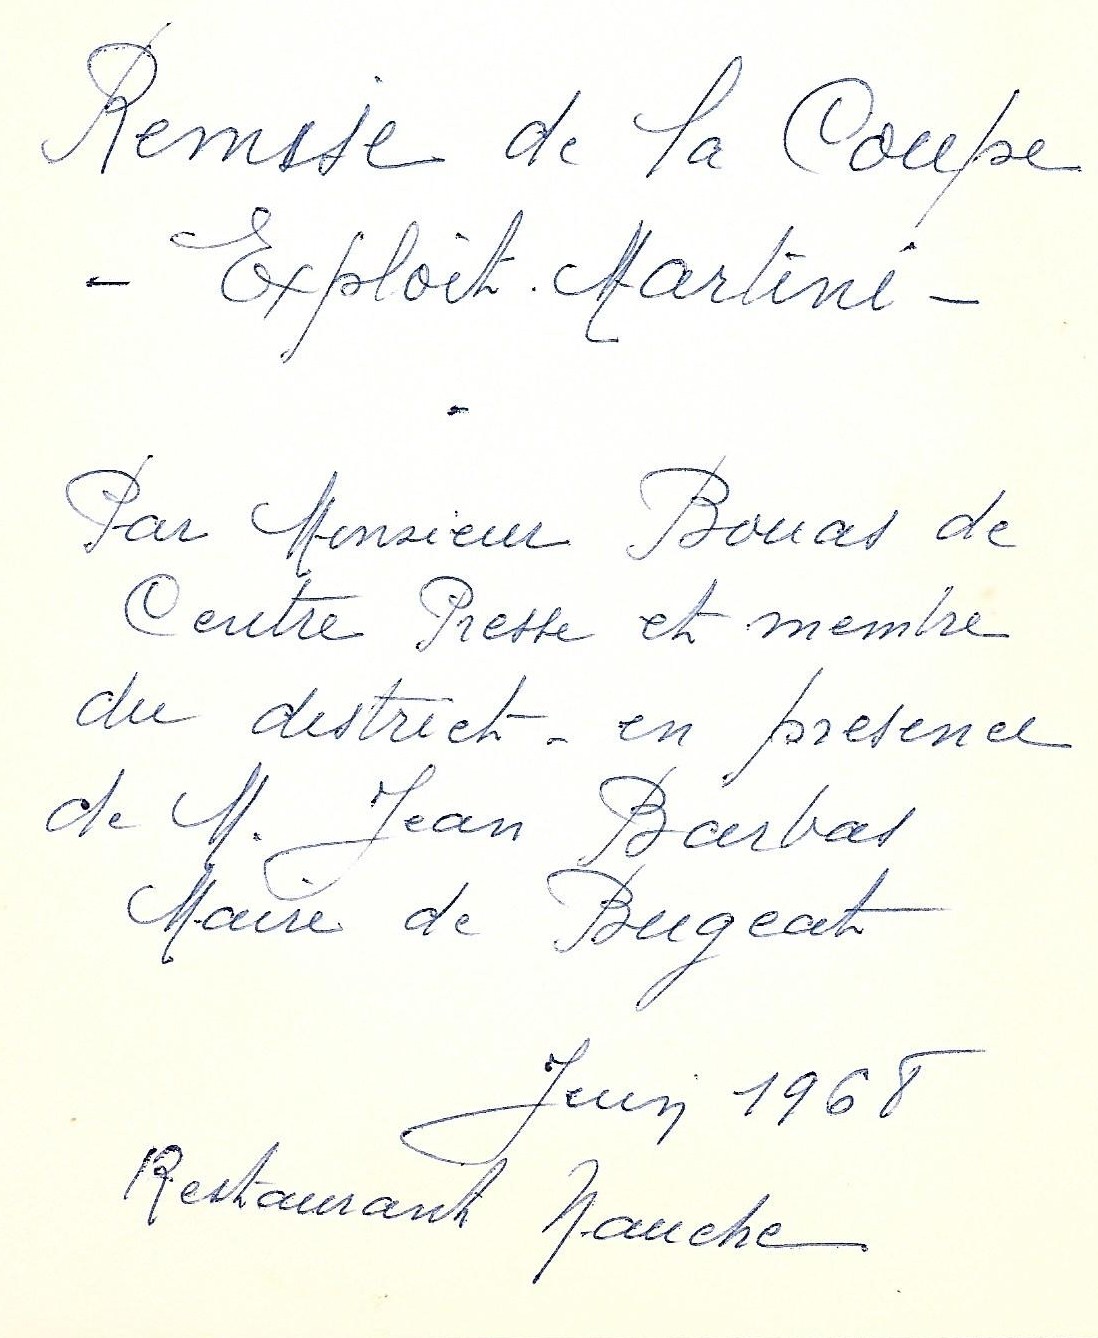 Remise de la Coupe
- Exploit. Martini -
-
Par Monsieur Bouas de
Centre Presse et membre
du district - en presence
de M. Jean Barbas
Maire de Bugeat
Juin 1968
Restaurant Nauche